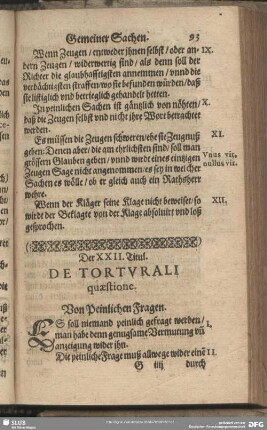 Gemeiner Sachen. 93
Wenn Zeugen / entweder jhnen selbst / oder an- IX.
dern Zeugen / widerwertig sind / als denn soll der
Richter die glaubhafftigsten annemmen / vnnd die
verdächtigsten straffen / wo sie befunden würden / daß
sie listiglich vnd betrieglich gehandelt hetten.
In peinlichen Sachen ist gänzlich von nöhten / X.
daß die Zeugen selbst vnd nicht jhre Wort betrachtet
werden.
Es müssen die Zeugen schweren / ehe sie Zeugnuß XI.
geben: Denen aber / die am ehrlichsten sind / soll man
grössern Glauben geben / vnnd werde eines eintzigen Vnus vir,
Zeugen Sage nicht angenommen / es sey in welcher nullus vir.
Sachen es wölle / ob er gleich auch ein Rathsherr
wehre.
Wenn der Kläger seine Klage nicht beweiset / so XII.
wirdt der Beklagte von der Klage absoluirt vnd loß
gesprochen.
Der XXII. Titul.
DE TORTVRALI
quæstione.
Von Peinlichen Fragen.
ES soll niemand peinlich gefragt werden / I.
man habe denn genugsame Vermutung vñ
anzeigung wider jhn.
Die peinliche Frage muß allwege wider einẽ II.
G iiij durch
SLUB
DFG